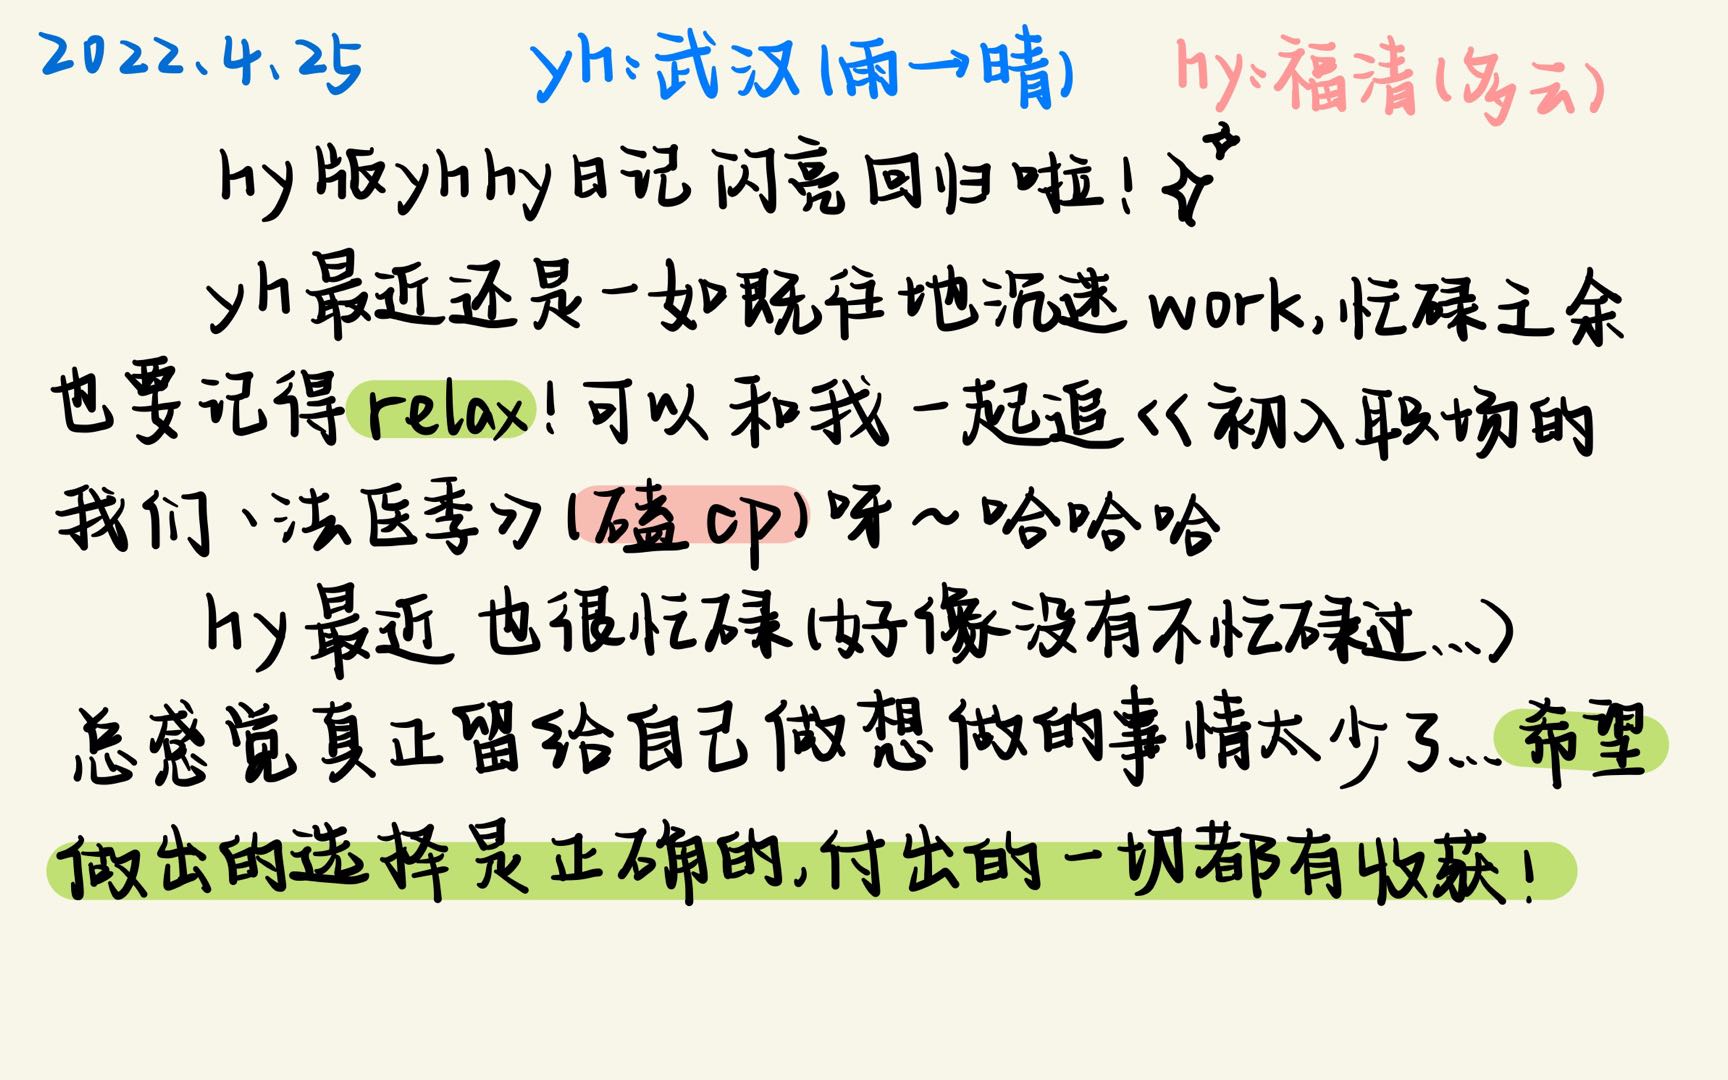 2022.4.25 yh:武汉(雨→晴) hy:福清(多云)
hy版yhhy日记闪亮回归啦!
yh最近还是一如既往地沉迷work,忙碌之余
也要记得relax!可以和我一起追《初入职场的
我们、法医季》(磕cp)呀~哈哈哈
hy最近也很忙碌(好像没有不忙碌过...)
总感觉真正留给自己做想做的事情太少了...希望
做出的选择是正确的,付出的一切都有收获!